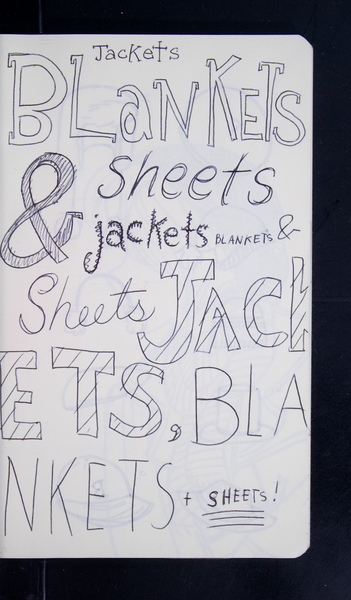 Jackets
BLanKETS
& Sheets
jackets BLANKETS &
Sheets JACK
ETS, BLA
NKETS + SHEETS!